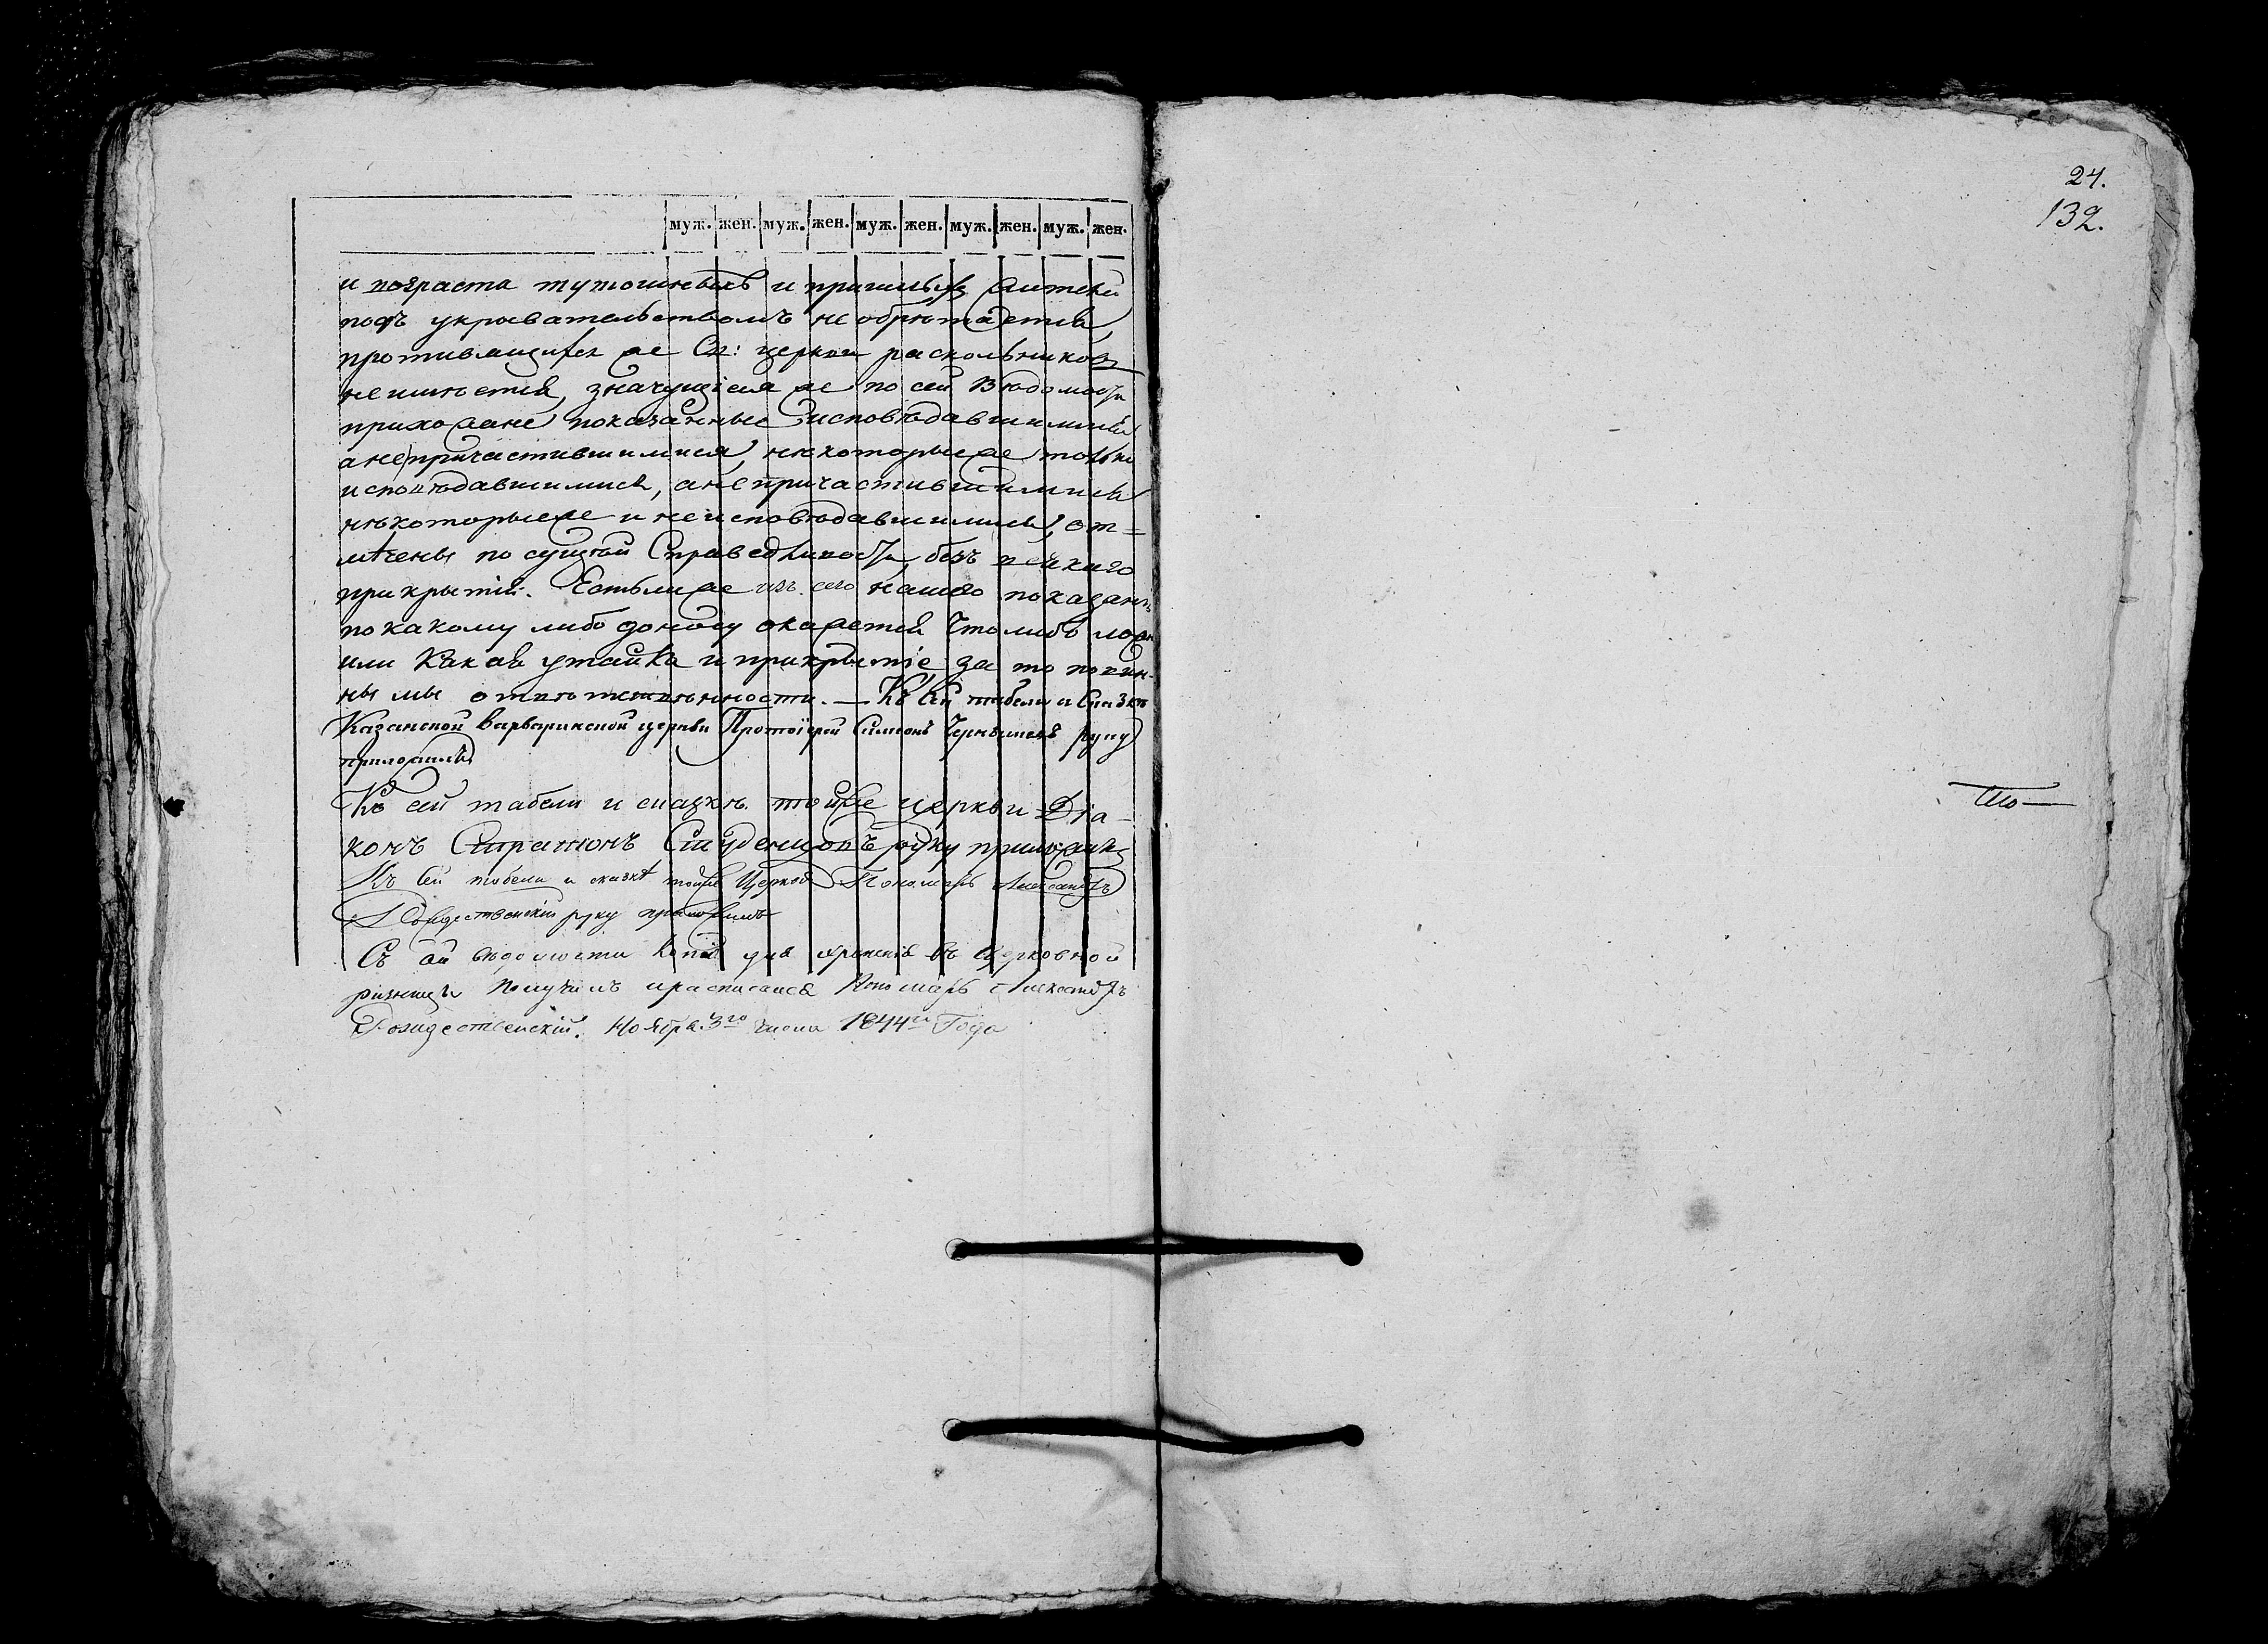 муж. жен. муж. жен. муж. жен. муж. жен. муж. жен.
и возраста тутошныхъ и пришлыхъ жителей
подъ укрывательствомъ не обрѣтается,
противящихся же Св: церкви раскольниковъ
не имѣется, значущіеся же по сей Вѣдомости
прихожане показанные исповѣдавшимися
а не причастившимися, нѣкоторые же только
исповѣдавшимися, а не причастившимися
нѣкоторые же и не исповѣдавшимися, от=
мѣчены по сущей Справедливости, безъ всякаго
прикрытія. Естьли же изъ сего нашего показанія
по какому либо доносу окажется Что либо ложно
или Какая утайка и прикрытіе, за то повин-
ны мы отвѣтственности. — Къ сей табели и Сказкѣ
Казанской Варваринской церкви Протоіерей Симеонъ руку
приложилъ
Къ сей табели и сказкѣ тойже церкви Діа-
конъ Стратонъ Студенцовъ руку приложилъ
Къ сей табели и сказкѣ тойже Церкви Пономарь Александръ
Рождественскій руку приложилъ
Съ сей вѣдомости копію для храненія въ Церковной
ризницѣ Получилъ и росписался Пономарь Александръ
Рождественскій. Ноября 3го числа 1844го Года
24.
132.